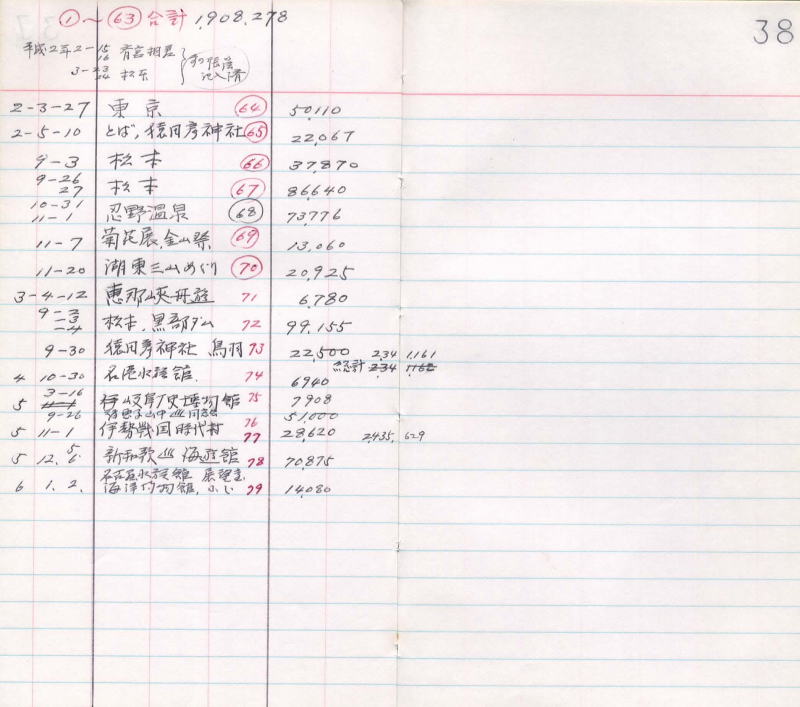 38
① ~ ㊿+63 合計 1,908,278
平成2年2-15
16
3-23
24 松本
2-3-27 東京 64 50,110
2-5-10 とば,猿田彦神社 65 22,067
9-3 松本 66 37,870
9-26
27 松本 67 86,640
10-31
11-1 忍野温泉 68 73,776
11-7 菊花展,金山祭, 69 13,060
11-20 湖東三山めぐり 70 20,925
3-4-12 恵那峡舟遊 71 6,780
9-2
-3
-4 松本,黒部ダム 72 99,155
9-30 猿田彦神社 鳥羽 73 22,500 2,34 1,161
総計 234 1162
4 10-30 名港水族館. 74 6940
3-16 75 7908
5 9-26 76 51,000
5 11-1 伊勢戦国時代村 77 28,620 2,435, 629
5 12, 5
6 新和歌 海遊館 78 70,875
名古屋水族館 展望室
6 1. 2. 海洋博物館, 79 14,080